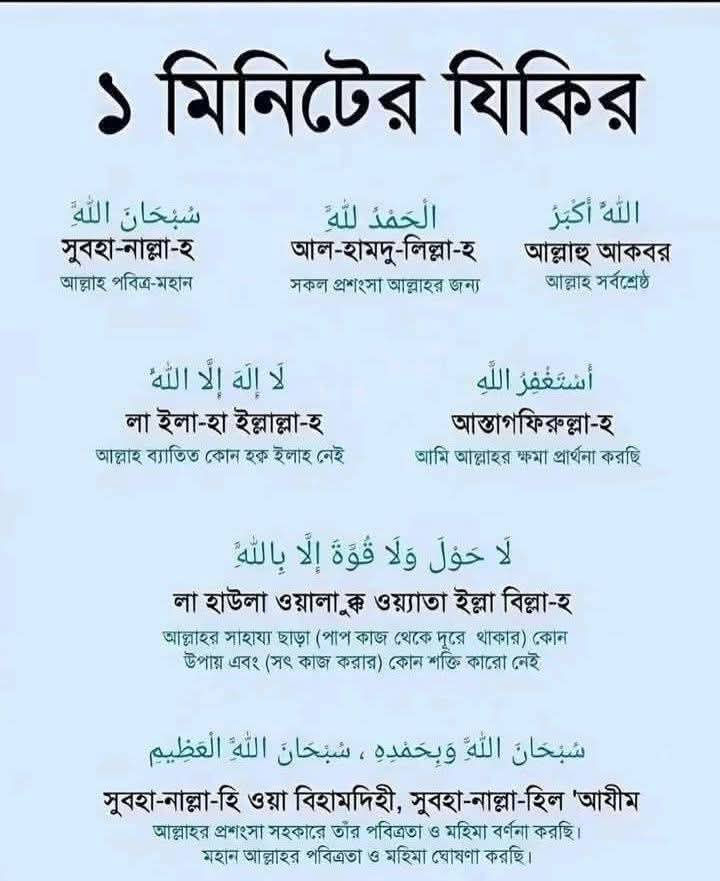 ১ মিনিটের যিকির
سُبْحَانَ اللَّهِ
সুবহা-নাল্লা-হ
আল্লাহ পবিত্র-মহান
الْحَمْدُ لِلَّهِ
আল-হামদু-লিল্লা-হ
সকল প্রশংসা আল্লাহর জন্য
اللَّهُ أَكْبَرُ
আল্লাহু আকবর
আল্লাহ সর্বশ্রেষ্ঠ
لَا إِلَهَ إِلَّا اللَّهُ
লা ইলা-হা ইল্লাল্লা-হ
আল্লাহ ব্যাতিত কোন হক্ব ইলাহ নেই
أَسْتَغْفِرُ اللَّهِ
আস্তাগফিরুল্লা-হ
আমি আল্লাহর ক্ষমা প্রার্থনা করছি
لَا حَوْلَ وَلَا قُوَّةَ إِلَّا بِاللَّهِ
লা হাউলা ওয়ালা ুক্ক ওয়্যাতা ইল্লা বিল্লা-হ
আল্লাহর সাহায্য ছাড়া (পাপ কাজ থেকে দূরে থাকার) কোন
উপায় এবং (সৎ কাজ করার) কোন শক্তি কারো নেই
سُبْحَانَ اللَّهِ وَبِحَمْدِهِ ، سُبْحَانَ اللَّهِ الْعَظِيمِ
সুবহা-নাল্লা-হি ওয়া বিহামদিহী, সুবহা-নাল্লা-হিল 'আযীম
আল্লাহর প্রশংসা সহকারে তাঁর পবিত্রতা ও মহিমা বর্ণনা করছি।
মহান আল্লাহর পবিত্রতা ও মহিমা ঘোষণা করছি।